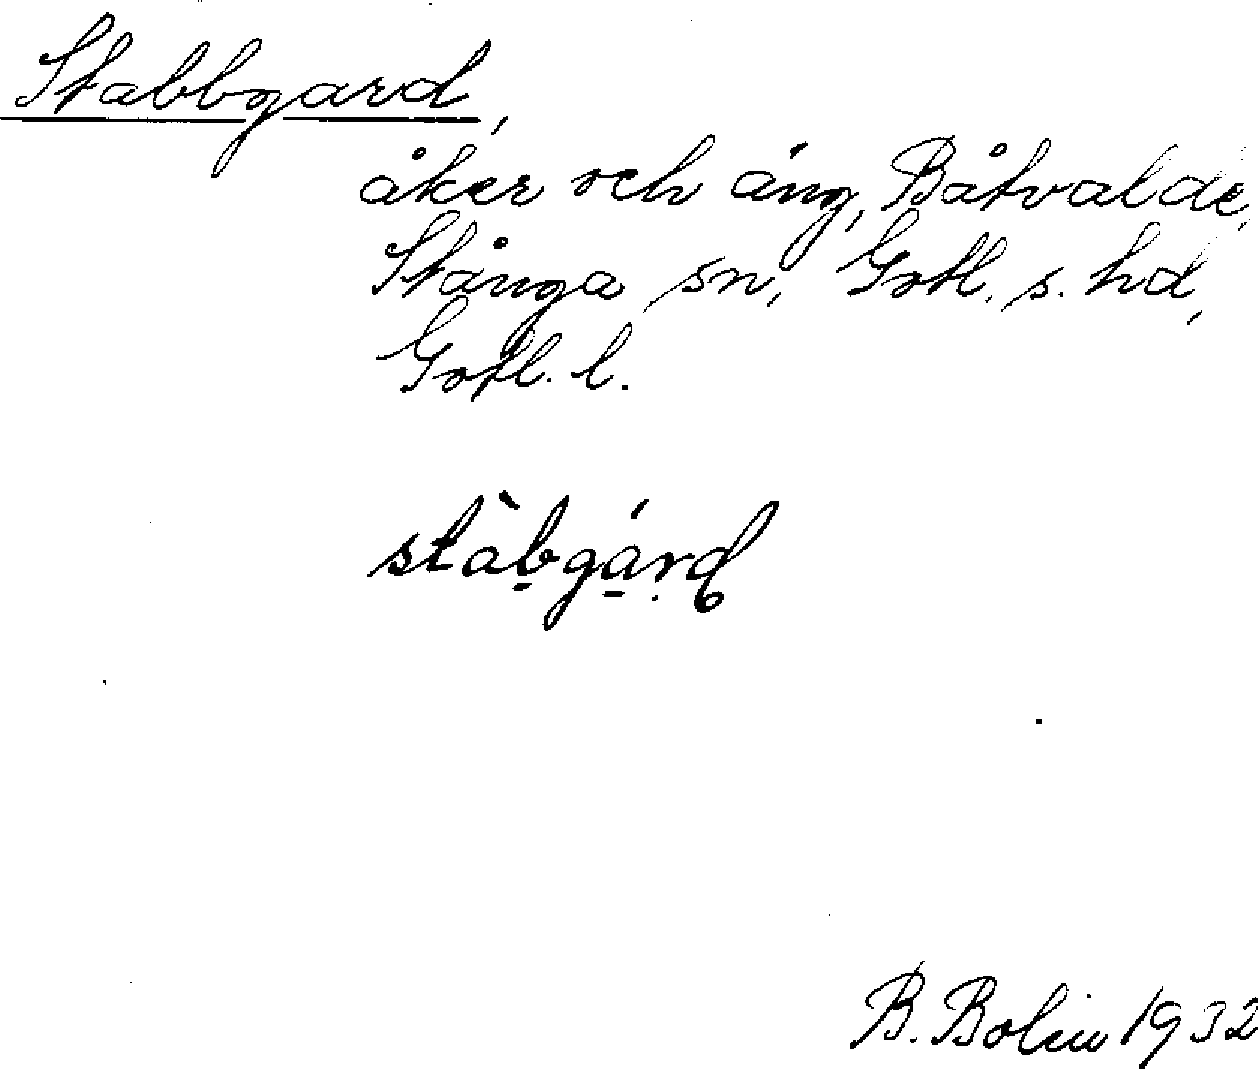 Stabbgard,
åker och äng, Båtvalde,
Stånga sn, Gotl. s. hd,
Gotl. l.
stàb̠gá̠ṛd
B. Bolin 1932